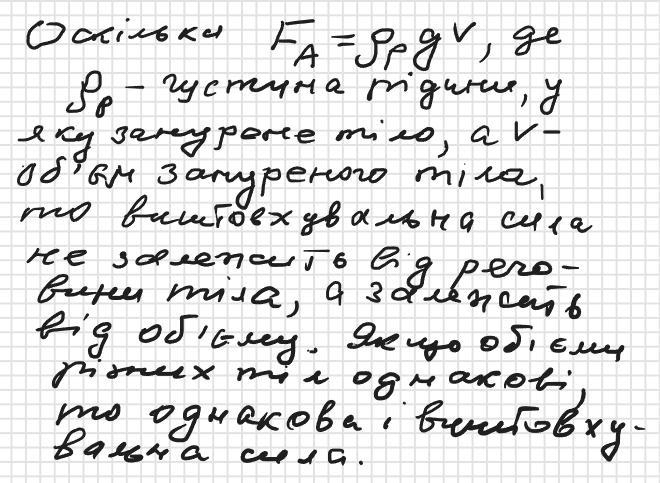 Оскільки F_A = ρ_р g V, де
ρ_р - густина рідини, у
яку занурене тіло, а V -
об'єм зануреного тіла,
то виштовхувальна сила
не залежить від речо-
вини тіла, а залежить
від об'єму. Якщо об'єми
різних тіл однакові,
то однакова і виштовху-
вальна сила.